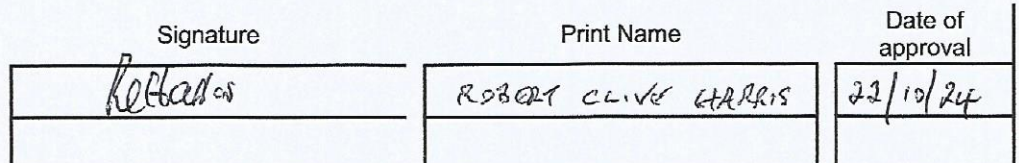 Signature Print Name Date of
approval
ROBERT CLIVE HARRIS 22/10/24